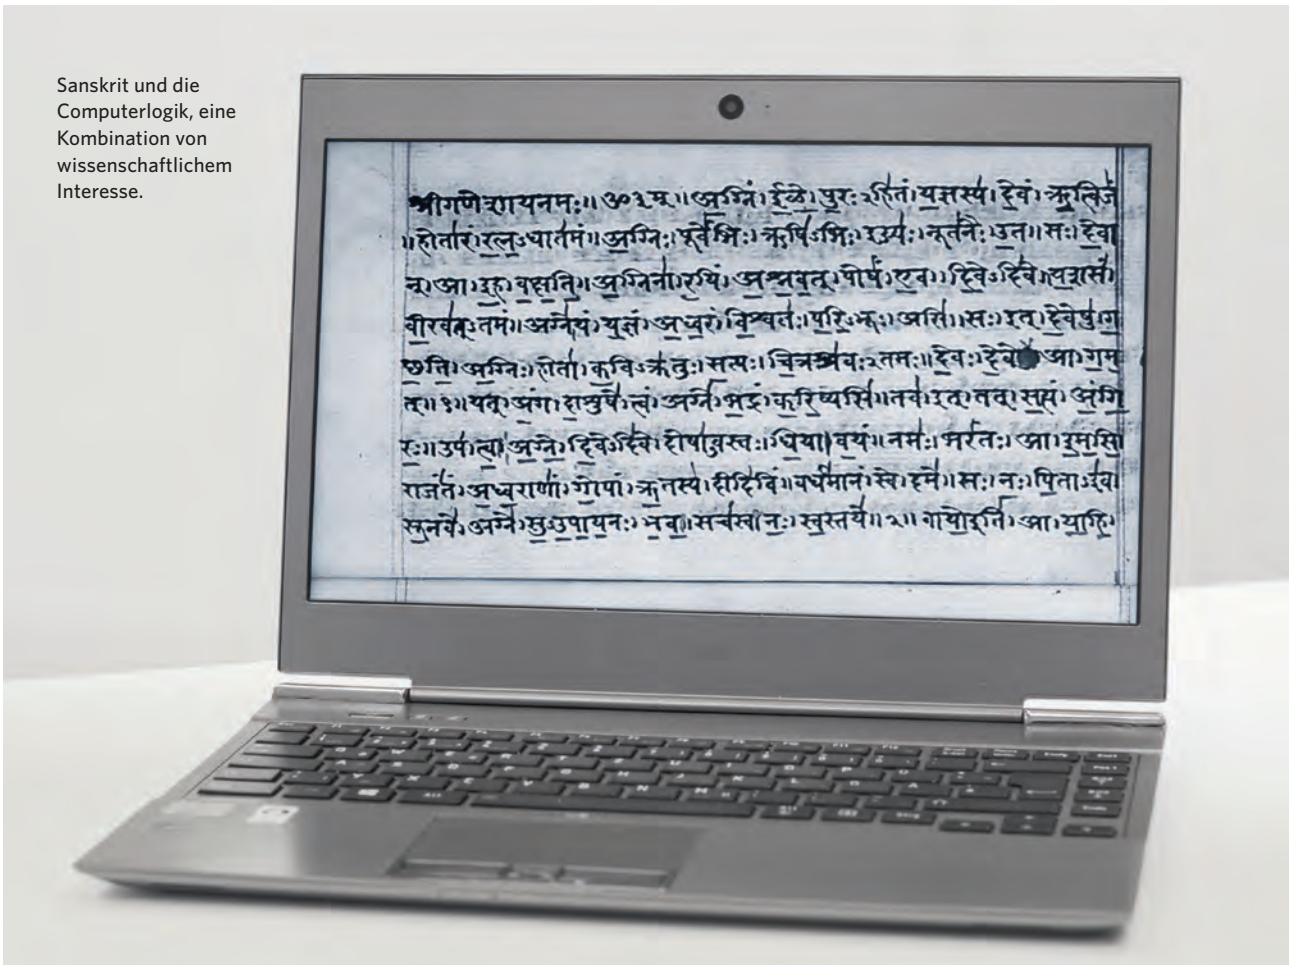 Sanskrit und die
Computerlogik, eine
Kombination von
wissenschaftlichem
Interesse.
श्रीगणेशायनमः॥ॐ३म्॥अ॒ग्निं।ई॒ळे॒।पु॒रः२हि॑तं।य॒ज्ञस्य॑।दे॒वं।ऋ॒त्विजं॑
॥होता॑रं।र॒त्न॒ऽधात॑मं॥अ॒ग्निः।पूर्वे॑भिः।ऋषि॑ऽभिः।ईड्यः॑।नूत॑नैः।उ॒त॥सः।दे॒वा
न्।आ।इ॒ह।व॒क्ष॒ति॒॥अ॒ग्निना॑।र॒यिं।अ॒श्न॒व॒त्।पोषं॑।ए॒व।दि॒वेऽदि॑वे॥य॒शसं॑।
वी॒रव॑त्ऽतमं॥अग्ने॑।यं।य॒ज्ञं।अ॒ध्व॒रं।वि॒श्वतः॑।प॒रि॒ऽभूः।असि॑॥सः।इत्।दे॒वेषु॑।ग॒
छ॒ति॒।अ॒ग्निः।होता॑।क॒विऽक्र॑तुः।स॒त्यः।चि॒त्रश्र॑वः२तमः॥दे॒वः। आ।ग॒म॒
त्॥१॥यत्।अं॒ग।दा॒शुषे॑।त्वं।अग्ने॑।भ॒द्रं।क॒रि॒ष्यसि॑॥तव॑।इत्।तत्।स॒त्यं।अं॒गि॒
रः॒॥उप॑।त्वा॒।अ॒ग्ने॒।दि॒वेऽदि॑वे।दोषा॑ऽवस्तः।धि॒या।व॒यं॥नमः॑।भरं॑तः।आ।इ॒म॒सि॒
राजं॑तं।अ॒ध्व॒राणां॑।गो॒पां।ऋ॒तस्य॑।दीदि॑विं॥वर्ध॑मानं।स्वे।दमे॑॥सः।नः॒।पि॒ताऽइ॑व।
सू॒नवे॑।अग्ने॑।सु॒ऽउ॒पा॒य॒नः।भ॒व॒॥सच॑स्व।नः॒।स्व॒स्तये॑॥२॥वायो॒इति॑।आ।या॒हि॒।